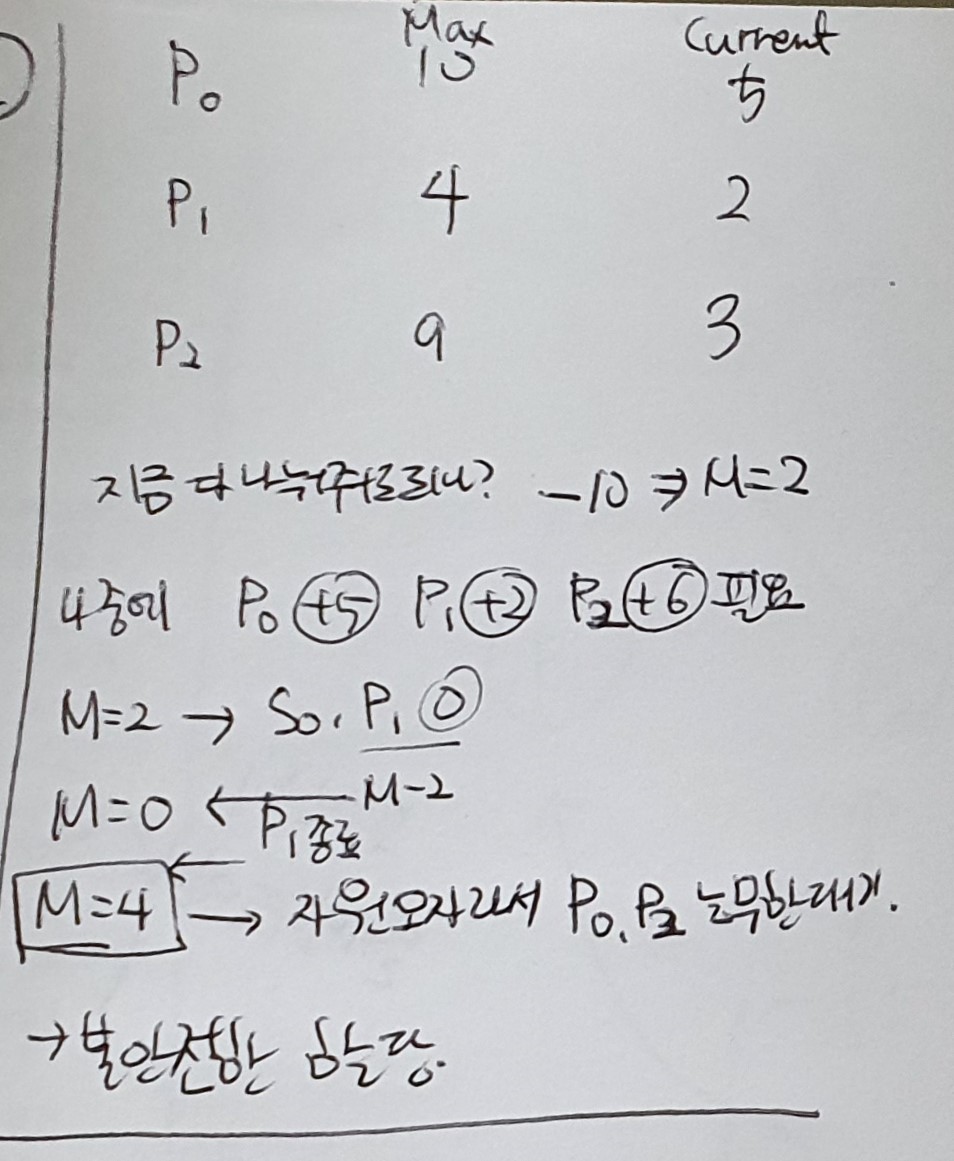 Max Current
P₀ 10 5
P₁ 4 2
P₂ 9 3
지금 다 나눠주려니? -10 ⇒ M=2
4중에 P₀ +5 P₁ +2 P₂ +6 필요
M=2 → So. P₁ 0
M=0 ← M-2
P₁종료
M=4 → 자원모자라서 P₀, P₂ 는무한대기.
→ 불안전한 할당.